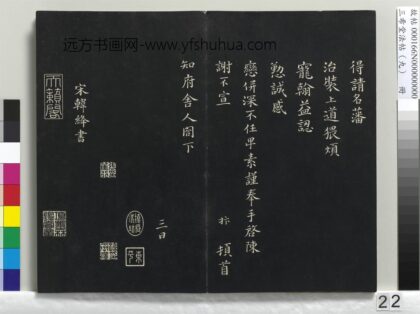 得請名藩
治裝上道猥煩
寵翰益認
懃誠感
戀併深不任卑素謹奉手啓陳
謝不宣 絳 頓首
知府舍人閤下
三日
宋韓絳書
天籟閣
远方书画网-www.yfshuhua.com
故帖 000166N000000000
三希堂法帖(九) 冊
22